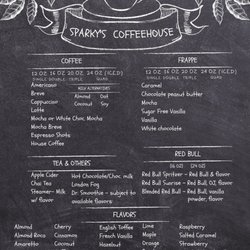 SPARKY'S COFFEEHOUSE
COFFEE
12 OZ 16 OZ 20 OZ 24 OZ (ICED)
SINGLE DOUBLE TRIPLE QUAD
Americano
Breve
Cappuccino
Latte
Mocha or White Choc. Mocha
Mocha Breve
Espresso Shots
House Coffee
MILK ALTERNATIVES
Almond Oat
Coconut Soy
FRAPPE
12 OZ 16 OZ 20 OZ 24 OZ (ICED)
SINGLE DOUBLE TRIPLE QUAD
Caramel
Chocolate peanut butter
Mocha
Sugar Free Vanilla
Vanilla
White chocolate
TEA & OTHERS
Apple Cider
Chai Tea
Steamer- Milk
w/ flavor
Hot choc/White choc, milk
London Fog
Dr. Smoothie - subject to
available flavors
RED BULL
(16 OZ) (24 OZ)
Red Bull Spritzer - Red Bull & flavor
Red Bull Sunrise - Red Bull, OJ, flavor
Blended Red Bull - Red Bull, vanilla
powder, flavor
FLAVORS
Almond
Almond Roca
Amaretto
Cherry
Cinnamon
Coconut
English Toffee
French Vanilla
Hazelnut
Lime
Macadamia
Mango
Raspberry
Salted Caramel
Strawberry